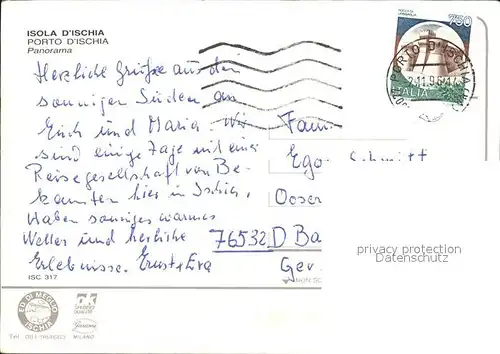 ISOLA D'ISCHIA
PORTO D'ISCHIA
Panorama
Herzliche Grüße aus dem
sonnigen Süden an
Euch und Maria. Wir
sind einige Tage mit einer
Reisegesellschaft von Be-
kannten hier in Ischia,
Haben sonniges warmes
Wetter und herrliche
Erlebnisse. Ernst + Eva
ISC 317
750
ITALIA
PORTO D'ISCHIA
Fam.
Ego Schmitt
76532 D Ba
Ger
privacy protection
Datenschutz
ED. DI MEGLIO
ISCHIA
MILANO